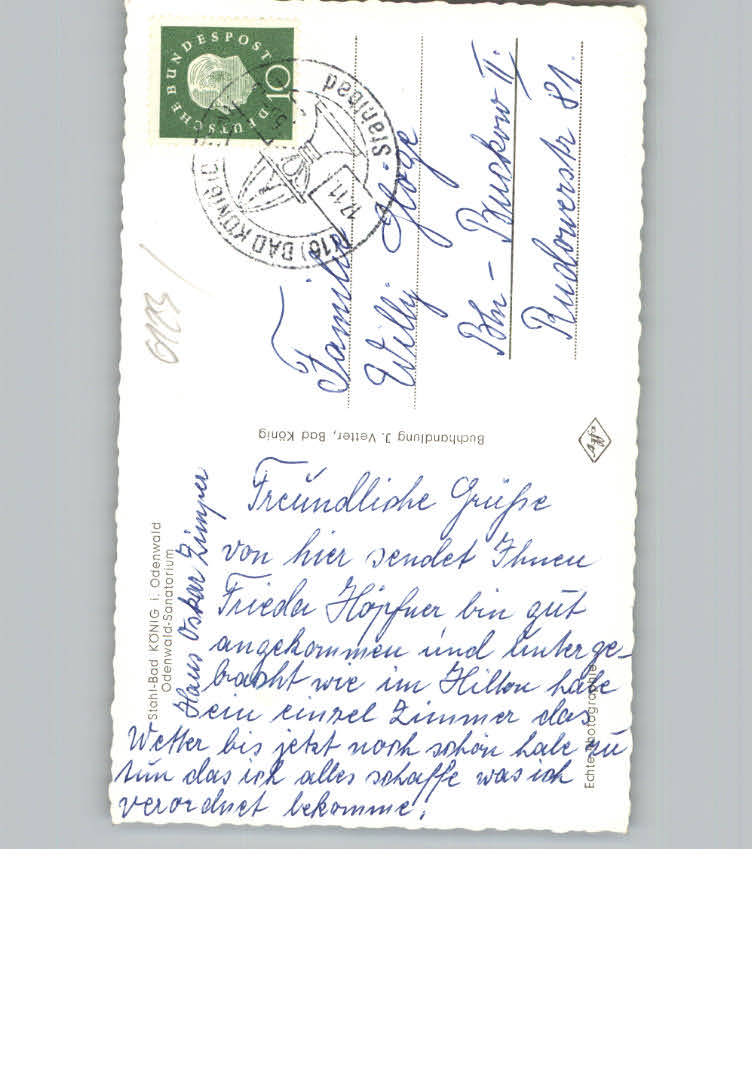 Stahl-Bad KÖNIG i. Odenwald
Odenwald-Sanatorium
Haus Oskar Zimper
Freundliche Grüße
von hier sendet Ihnen
Frieda Höpfner bin gut
angekommen und unterge-
bracht wie im Hilton habe
ein einzel Zimmer das
Wetter bis jetzt noch schön habe zu
tun das ich alles schaffe was ich
verordnet bekomme.
Buchhandlung J. Vetter, Bad König
Echte Photographie
Agfa
DEUTSCHE BUNDESPOST
10
(16) BAD KÖNIG
Stahlbad
17.11.
Familie
Willy Gloge
Bln - Buckow II.
Rudowerstr 81.
6123